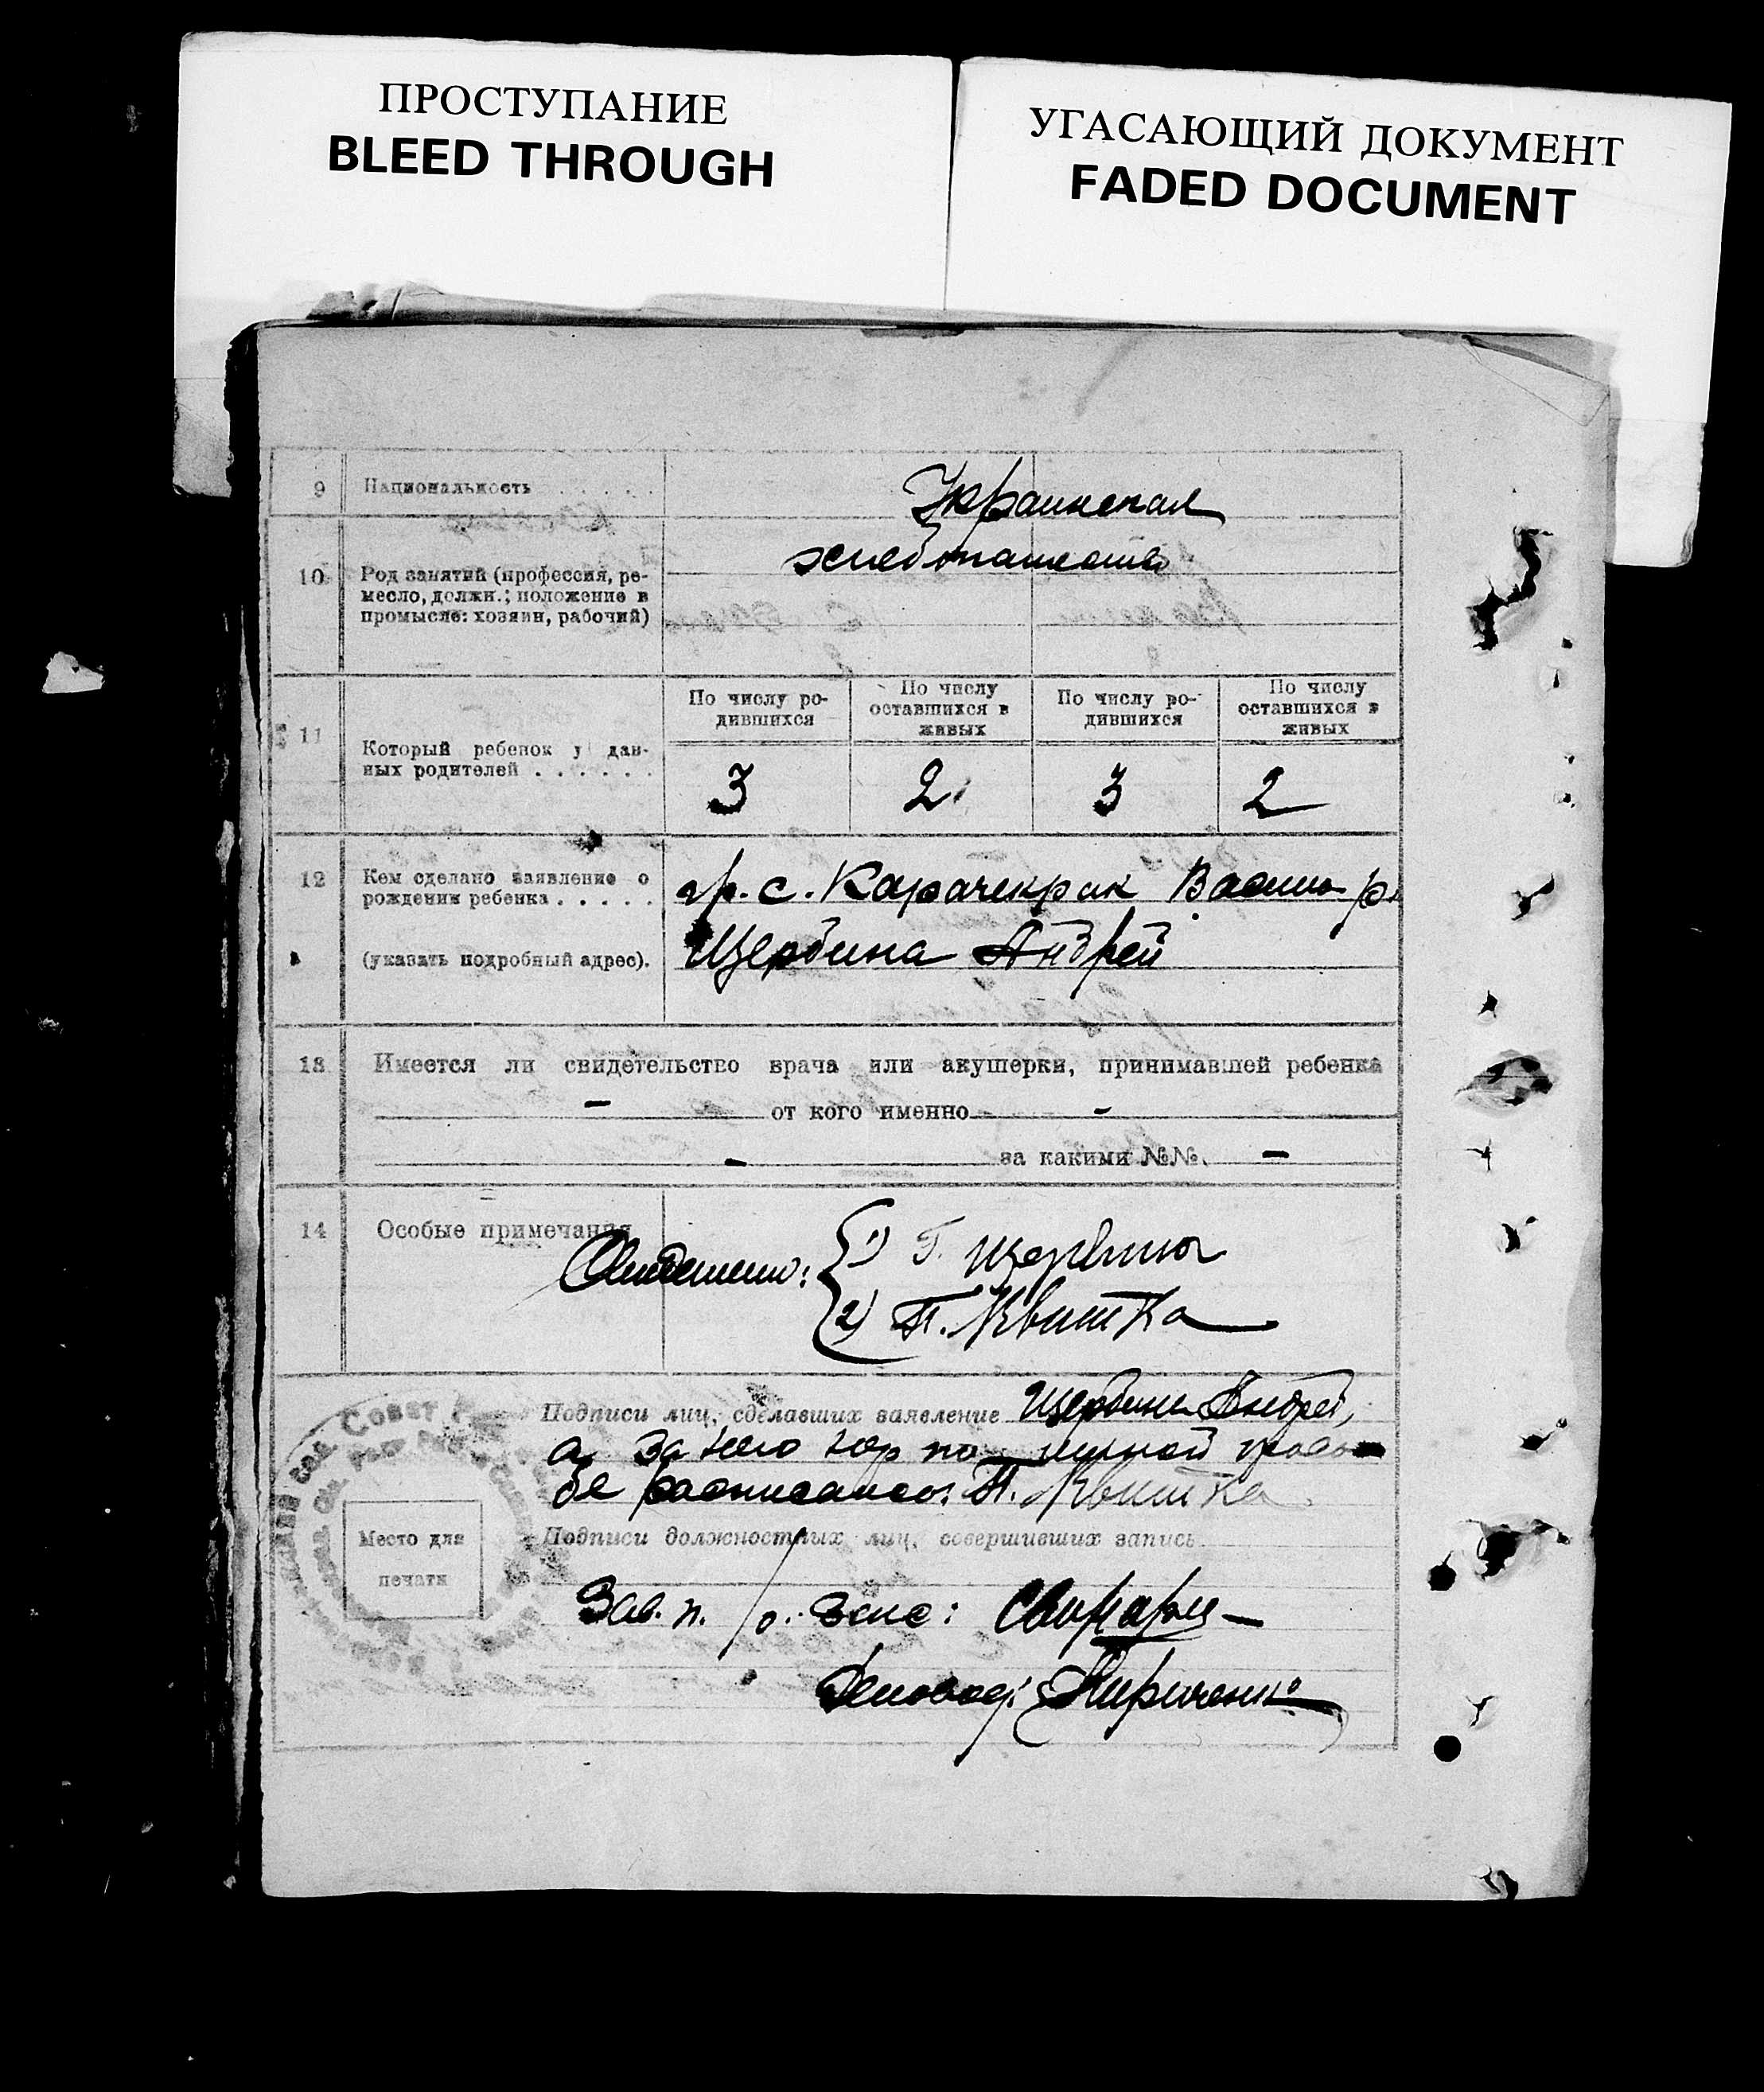 ПРОСТУПАНИЕ
BLEED THROUGH
УГАСАЮЩИЙ ДОКУМЕНТ
FADED DOCUMENT
9 Национальность . . . . . . Украинская
10 Род занятий (профессия, ре-
месло, должн.; положение в
промысле: хозяин, рабочий)
хлебопашество
11 Который ребенок у дан-
ных родителей . . . . . .
По числу ро-
дившихся
По числу
оставшихся в
живых
По числу ро-
дившихся
По числу
оставшихся в
живых
3 2 3 2
12 Кем сделано заявление о
рождении ребенка . . . . .
(указать подробный адрес).
гр. с. Карачекрак Васил р
Щербина Андрей
13 Имеется ли свидетельство врача или акушерки, принимавшей ребенка
– от кого именно –
– за какими №№. –
14 Особые примечания
Свидетели:
1) Г. Щербина
2) П. Квитка
Подписи лиц, сделавших заявление Щербина Андрей,
а за него негр по личной прось-
бе расписался: П. Квитка
Место для
печати
Подписи должностных лиц, совершивших запись
Зав. п. / о. загс:
Деловод: Кириченко